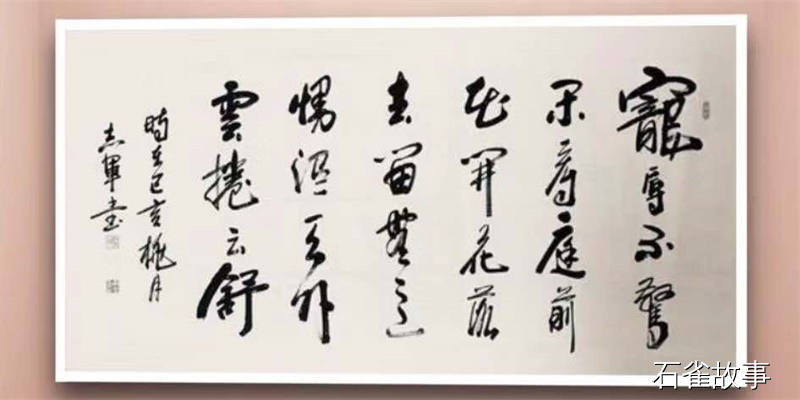 寵辱不驚
閑看庭前
花開花落
去留無意
天外
雲捲云舒
時在己亥桃月
志軍書
石雀故事